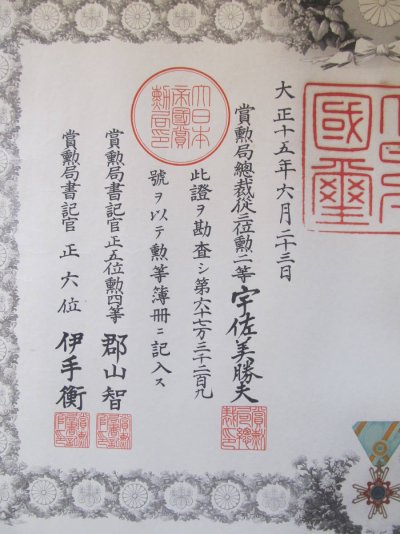 國璽
大正十五年六月二十三日
賞勲局總裁從三位勲二等 宇佐美勝夫
賞勲局總裁印
此證ヲ勘査シ第六十七万三千二百九
號ヲ以テ勲等簿冊ニ記入ス
大日本帝國賞勲局印
賞勲局書記官正五位勲四等 郡山智
賞勲局書記官正六位 伊手衡